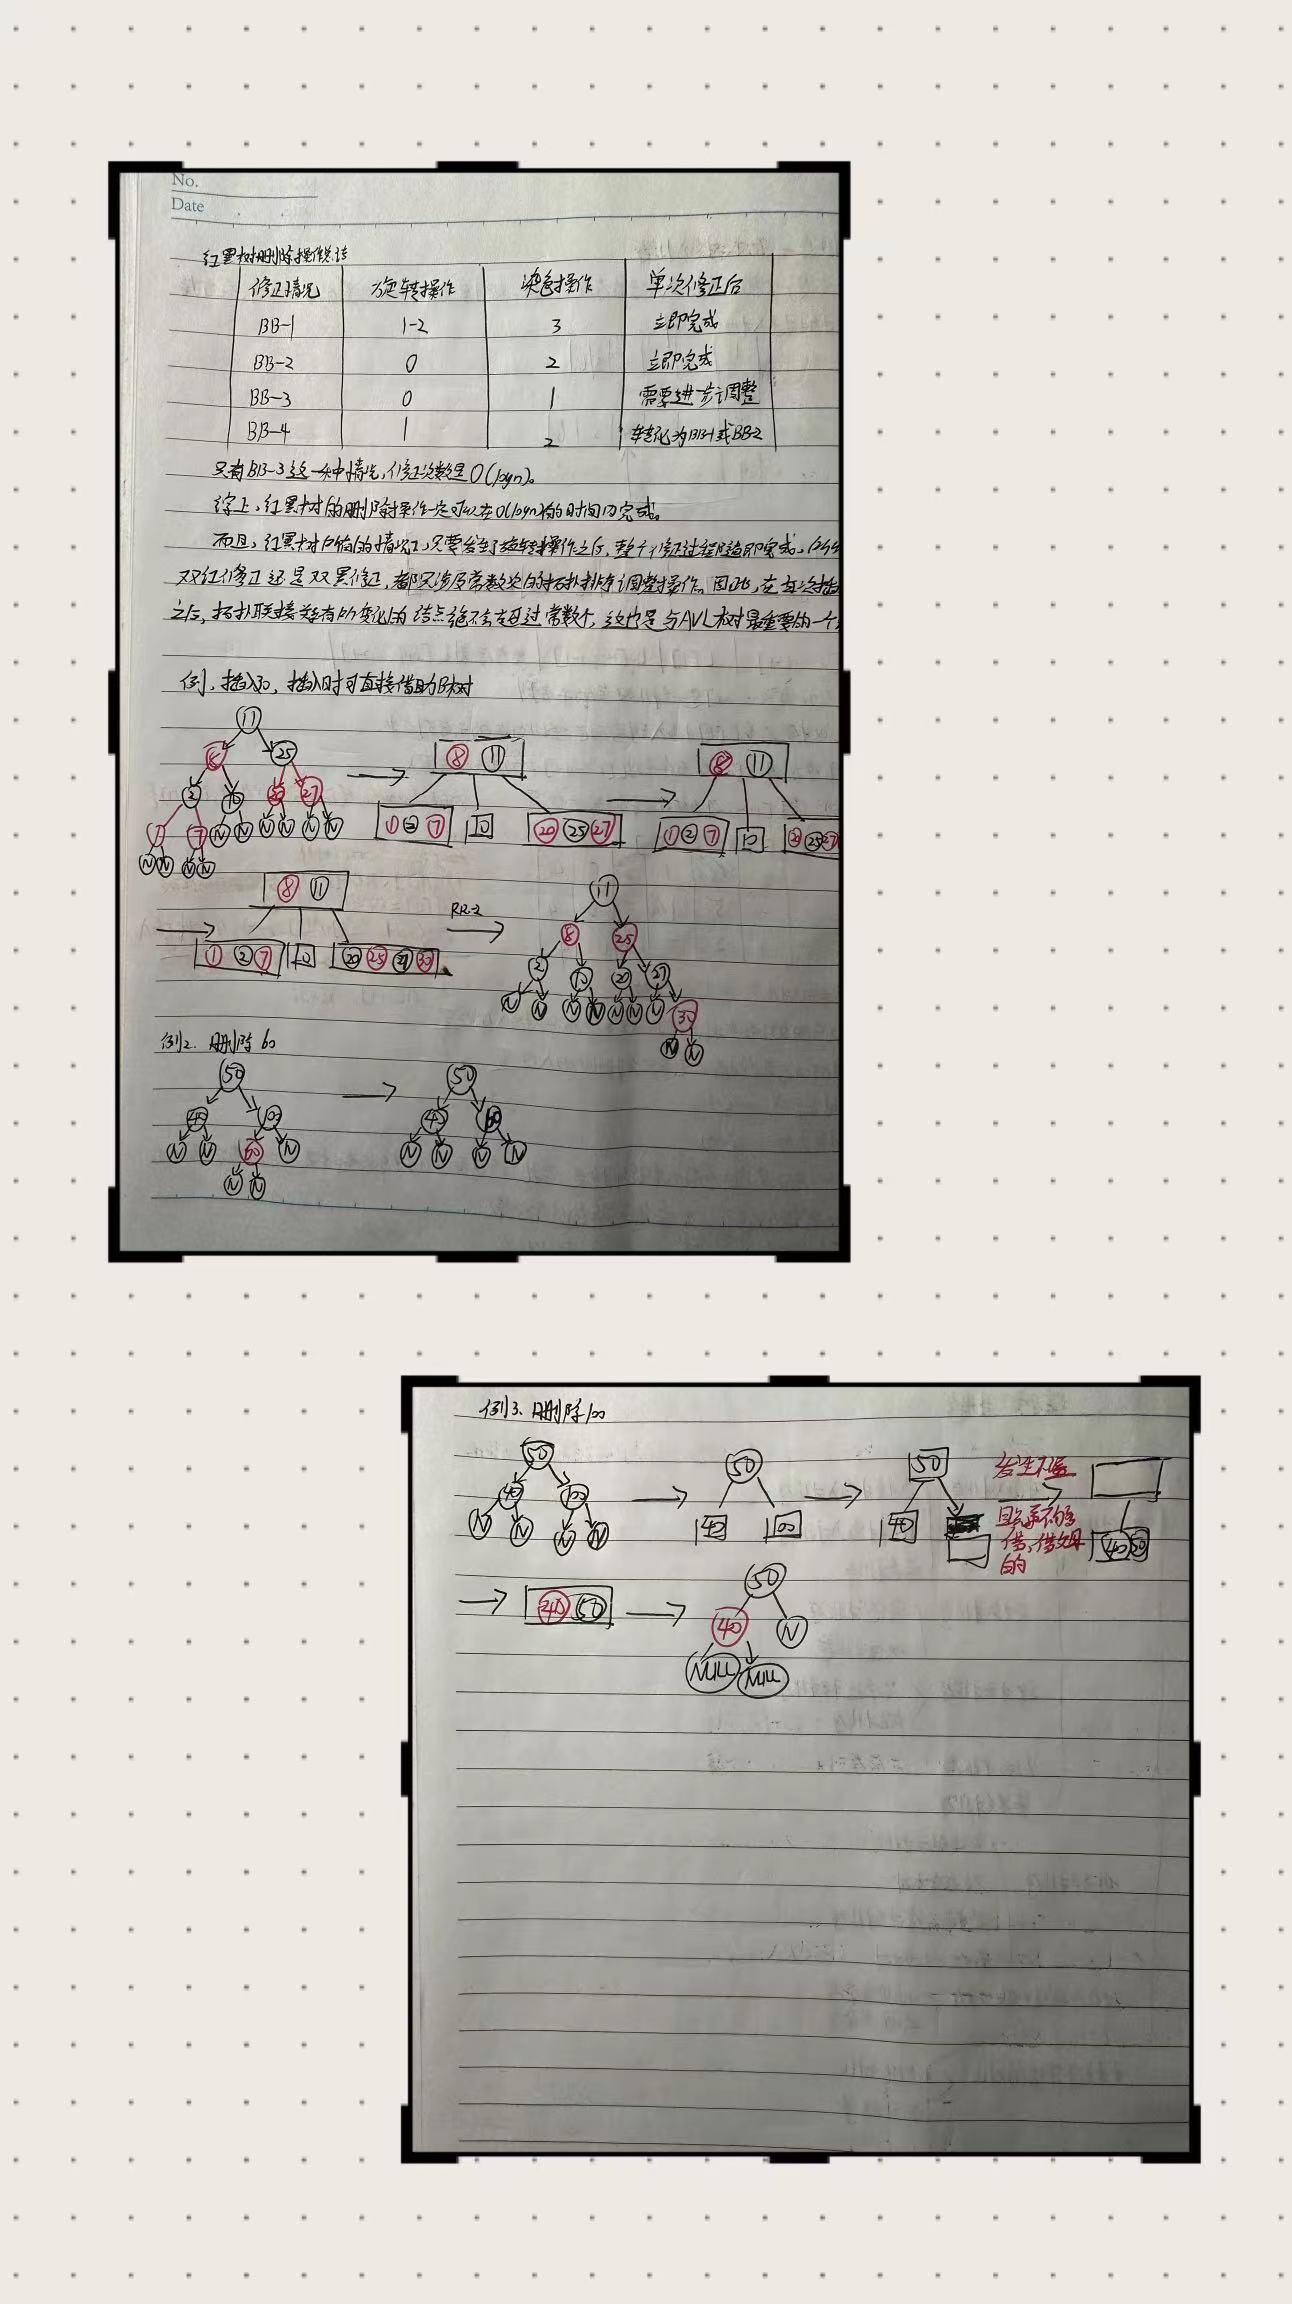 No.
Date
红黑树删除操作总结
修正情况 旋转操作 染色操作 单次修正后
BB-1 1-2 3 立即完成
BB-2 0 2 立即完成
BB-3 0 1 需要进一步调整
BB-4 1 2 转化为BB-1或BB-2
只有BB-3这一种情况,修正次数是O(logn)。
综上,红黑树的删除操作一定可以在O(logn)的时间内完成。
而且,红黑树内部的情况,只要发生了旋转操作之后,整个修正过程随即完成。
双红修正还是双黑修正,都只涉及常数次的拓扑排序调整操作。因此,在每次插
之后,拓扑联接关系有所变化的结点绝不会超过常数个,这也是与AVL树最重要的一个
例1,插入30,插入时可直接借助B树
11
25
2 10 20 27
1 7 N N N N N N
N N N N
8 11
1 2 7 10 20 25 27
8 11
1 2 7 10 20 25 27
8 11
1 2 7 10 20 25 27 30
RR-2
11
8 25
2 10 20 27
N N N N N N N 30
N N
例2. 删除60
50
40 100
N N 60 N
N N
50
40
N N N N
例3. 删除100
50
40 100
N N N N
50
40 100
50
40
发生下溢
兄弟不够
借,借父母
的
40 50
40 50
50
40 N
NULL NULL